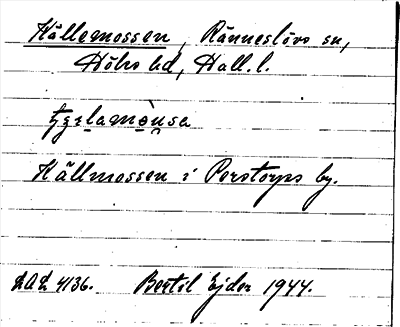 Källemossen, Ränneslövs sn,
Höks hd, Hall. l.
Källmossen i Perstorps by.
LAL 4136. Bertil Ejder 1944.